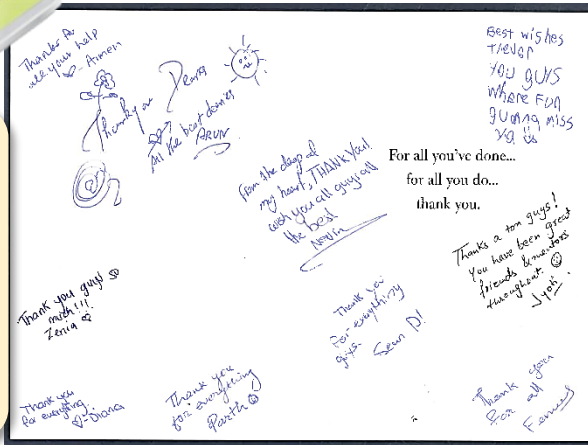 Thanks for
all your help
- Aimen
Thank you
Dennis
All the best dennis
ARUN
Best wishes
Trevor
You guys
where fun
gunna miss
ya
From the deep of
my heart, THANK YOU!
wish you all guys all
the best
Nevin
For all you've done...
for all you do...
thank you.
Thanks a ton guys!
You have been great
friends & mentors
throughout.
Jyoti
Thank you guys so
much!!!
Zenia
Thank you
for everything
guys.
Sean D!
Thank you
for everything.
-Diana
Thank you
for everything
Parth
Thank you
for all